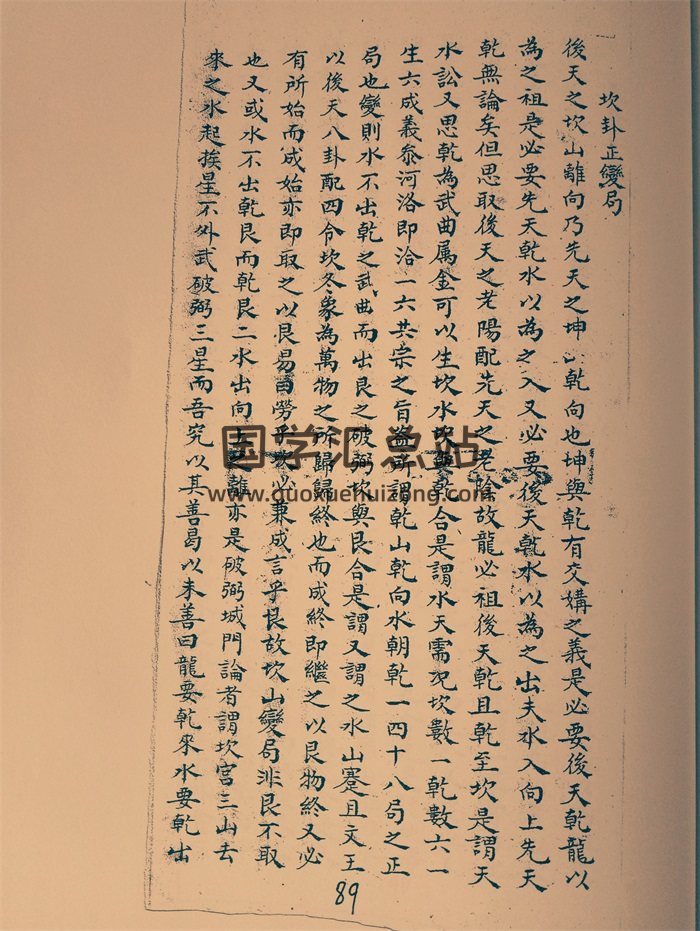 坎卦正變局
後天之坎山離向乃先天之坤山乾向也坤與乾有交媾之義是必要後天乾龍以
為之祖是必要先天乾水以為之入又必要後天乾水以為之出夫水入向上先天
乾無論矣但思取後天之老陽配先天之老陰故龍必祖後天乾且乾至坎是謂天
水訟又思乾為武曲属金可以生坎水坎與乾合是謂水天需況坎數一乾數六一
生六成義叅河洛即洽一六共宗之旨盖所謂乾山乾向水朝乾一四十八局之正
局也變則水不出乾之武曲而出艮之破弼坎與艮合是謂又謂之水山蹇且文王
以後天八卦配四令坎冬象為萬物之所歸歸終也而成終即繼之以艮物終又必
有所始而成始亦即取之以艮易曰勞乎坎必兼成言乎艮故坎山變局非艮不取
也又或水不出乾艮而乾艮二水出向上之離亦是破弼城門論者謂坎宮三山去
來之水起挨星不外武破弼三星而吾究以其善曷以未善曰龍要乾來水要乾出
89
国学汇总站
www.guoxuehuizong.com